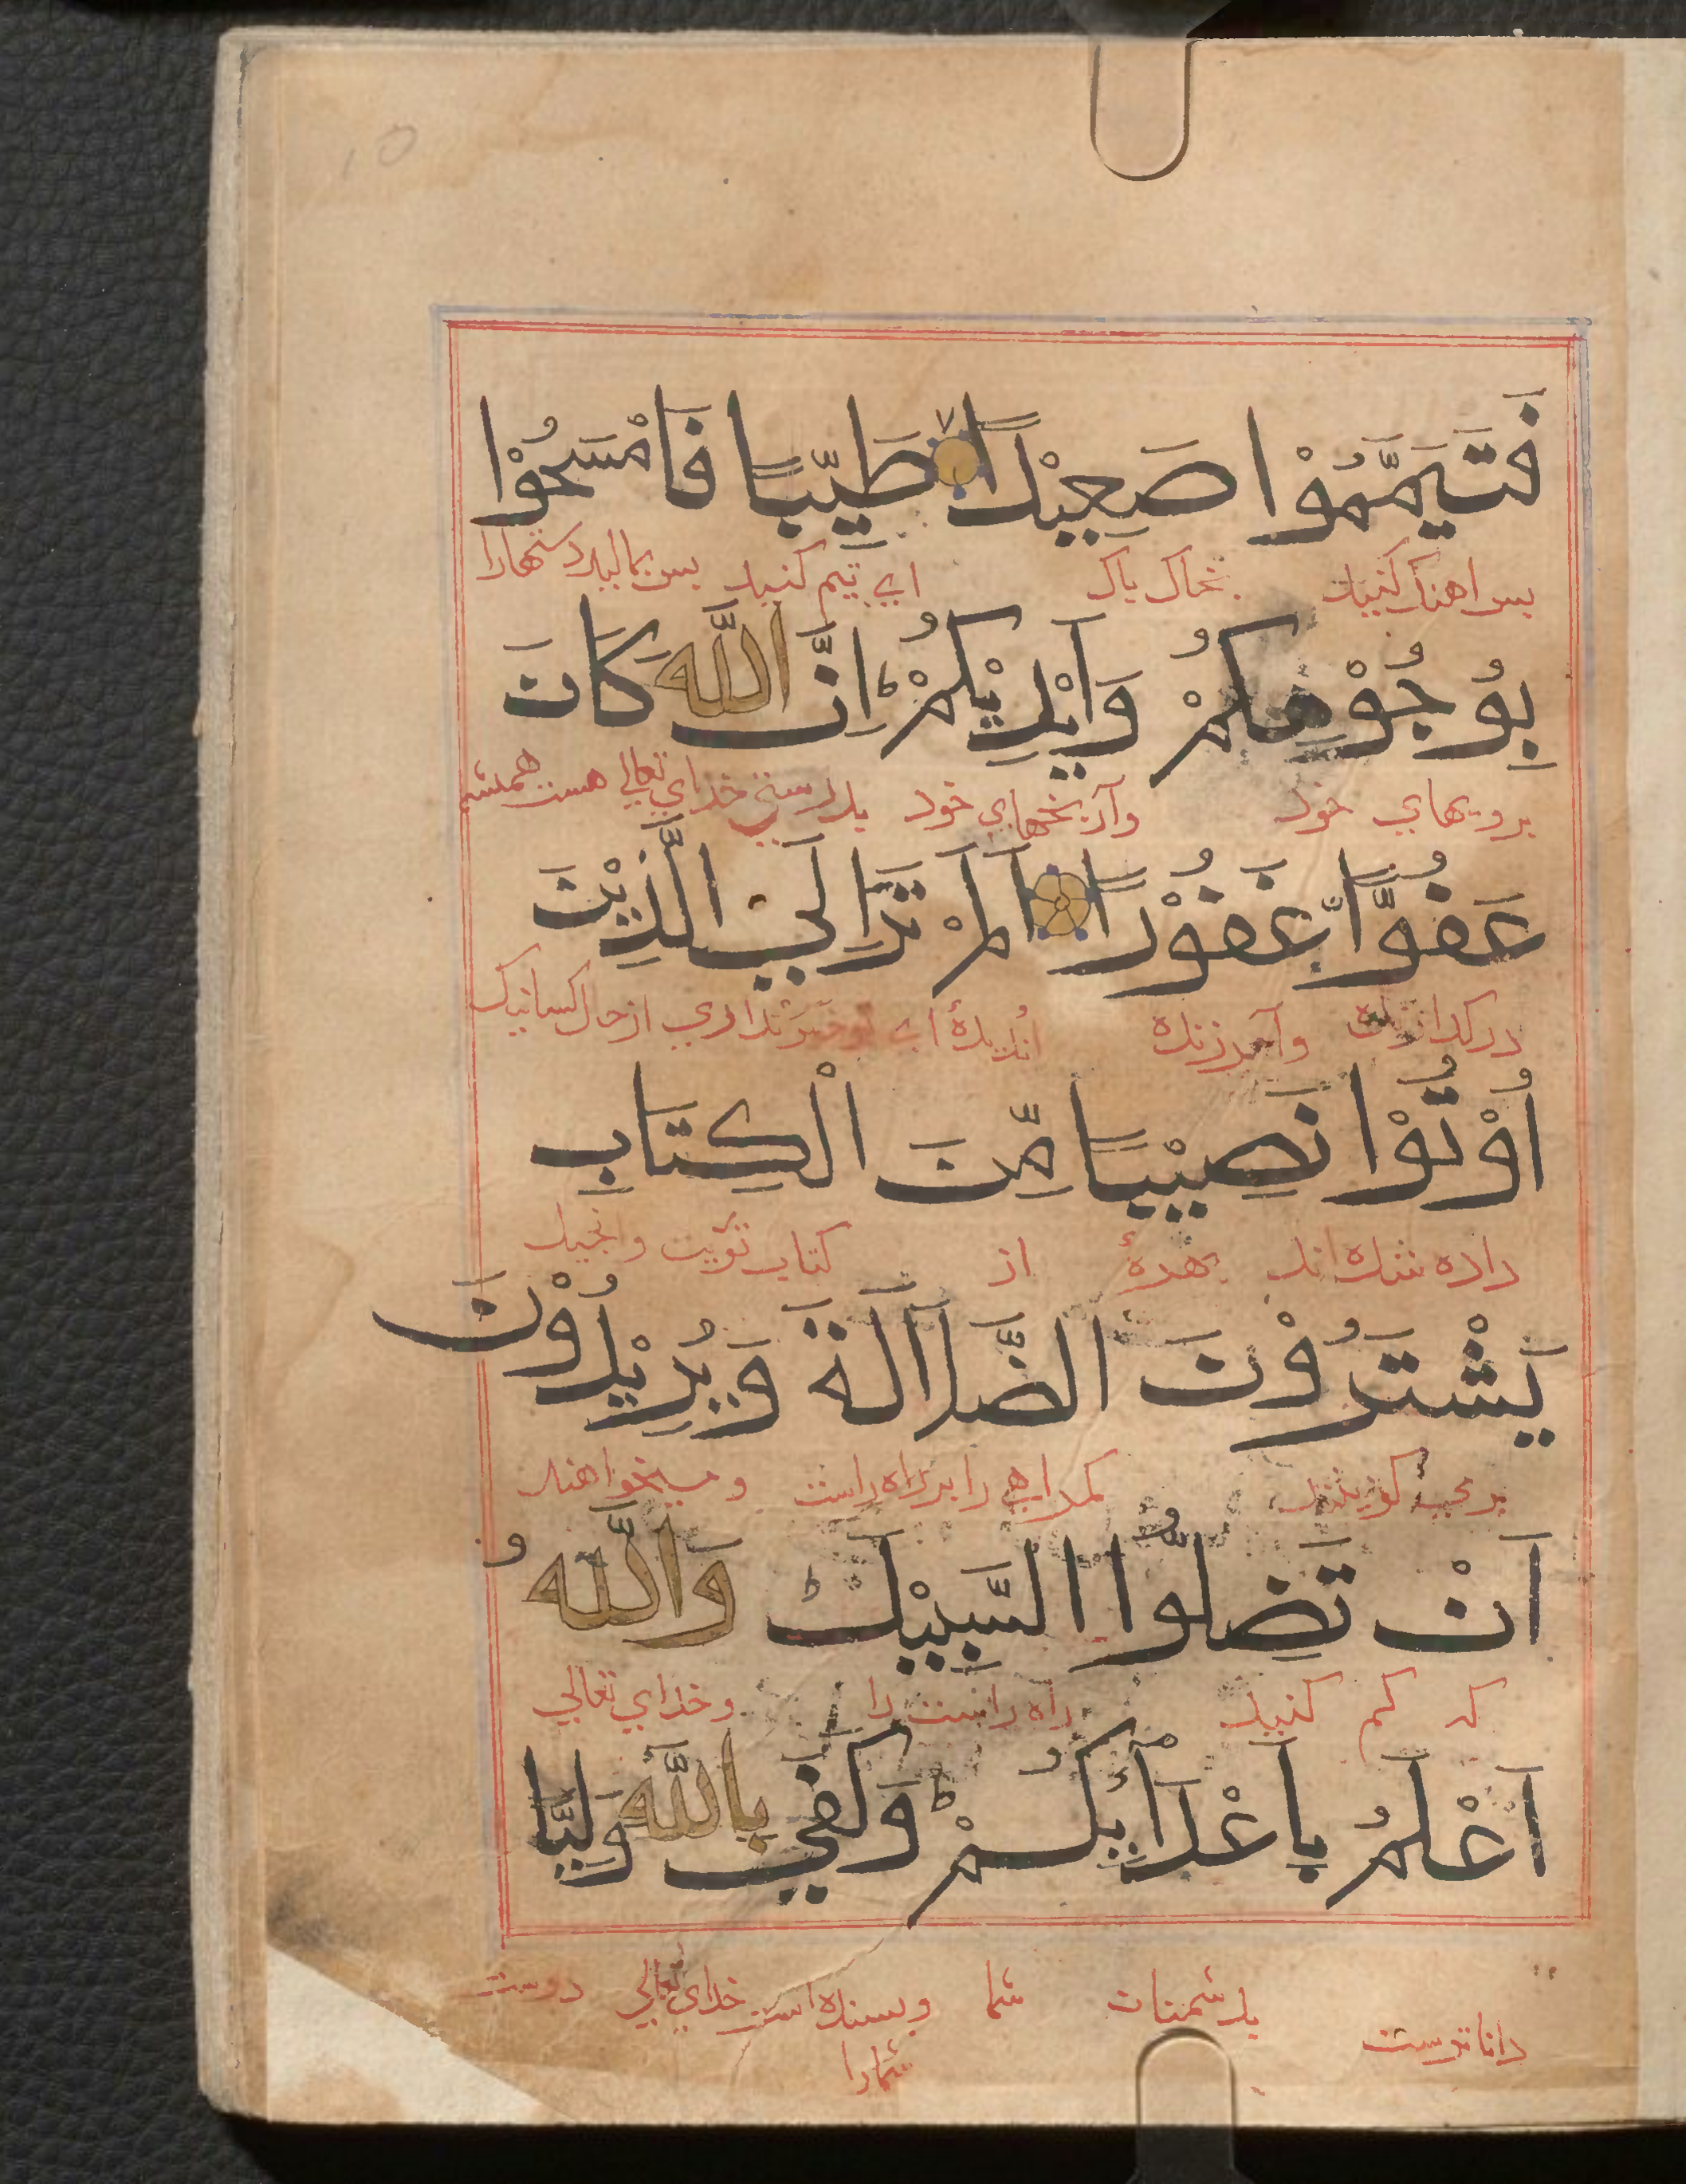 فَتَيَمَّمُوْا صَعِيْدًا طَيِّبًا فَامْسَحُوْا
پس اهنك كنيد بخاك پاك اي تيمم كنيد پس بماليد دستهارا
بِوُجُوْهِكُمْ وَاَيْدِيْكُمْ ط اِنَّ اللّٰهَ كَانَ
برويهاي خود وآرنجهاي خود بدرستي خداي تعالي هست هميشه
عَفُوًّا غَفُوْرًا اَلَمْ تَرَ اِلَي الَّذِيْنَ
دركذارنده وآمرزنده انديدهٔ اي نداري ازحال كسانيك
اُوْتُوْا نَصِيْبًا مِّنَ الْكِتَابِ
داده شده اند بهرهٔ از كتاب توريت وانجيل
يَشْتَرُوْنَ الضَّلَالَةَ وَيُرِيْدُوْنَ
كمراهي را برراه راست وميخواهند
اَنْ تَضِلُّوا السَّبِيْلَ ط وَاللّٰهُ
كه كم كنيد راه راست را وخداي تعالي
اَعْلَمُ بِاَعْدَآئِكُمْ ط وَكَفٰي بِاللّٰهِ وَلِيًّا
داناترست بدشمنان شما وبسنده است خداي تعالي دوست
شمارا